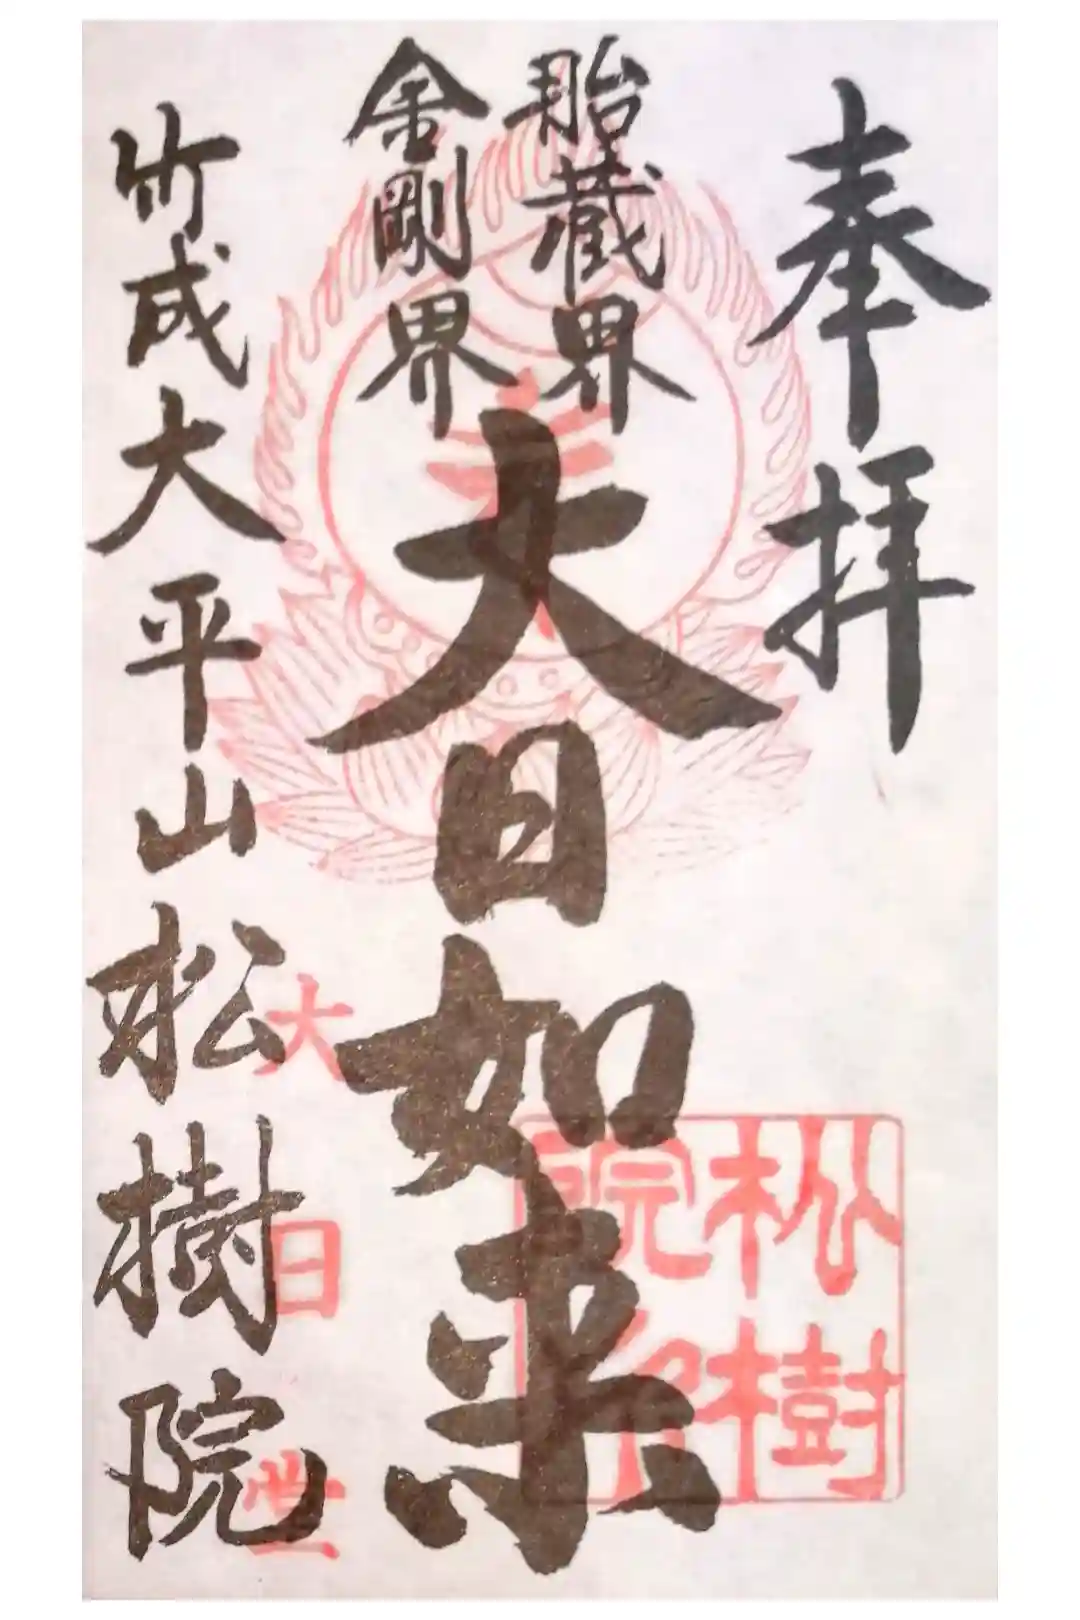 奉拝
胎蔵界
金剛界
大日如来
竹成大平山松樹院
大日堂
松樹院印